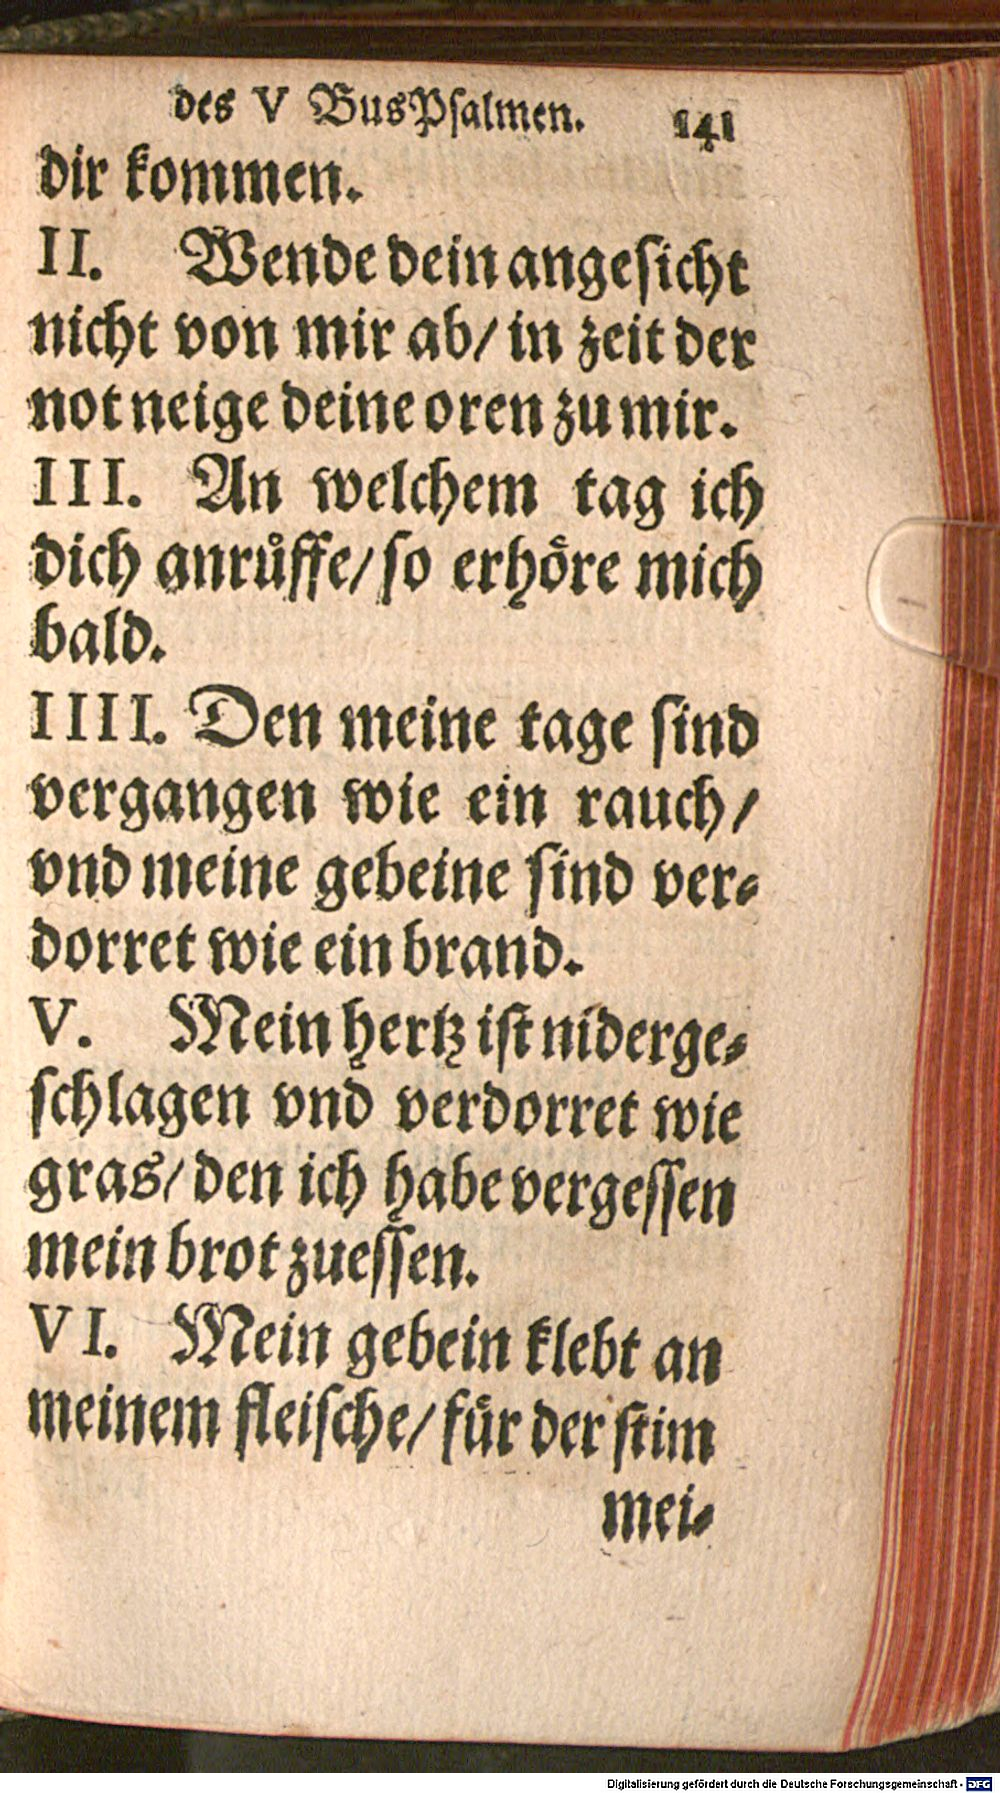 des V BusPsalmen. 141
dir kommen.
II. Wende dein angesicht
nicht von mir ab/ in zeit der
not neige deine oren zu mir.
III. An welchem tag ich
dich anrůffe/ so erhöre mich
bald.
IIII. Den meine tage sind
vergangen wie ein rauch/
vnd meine gebeine sind ver-
dorret wie ein brand.
V. Mein hertz ist niderge-
schlagen vnd verdorret wie
gras/ den ich habe vergessen
mein brot zuessen.
VI. Mein gebein klebt an
meinem fleische/ für der stim
mei-
Digitalisierung gefördert durch die Deutsche Forschungsgemeinschaft - DFG